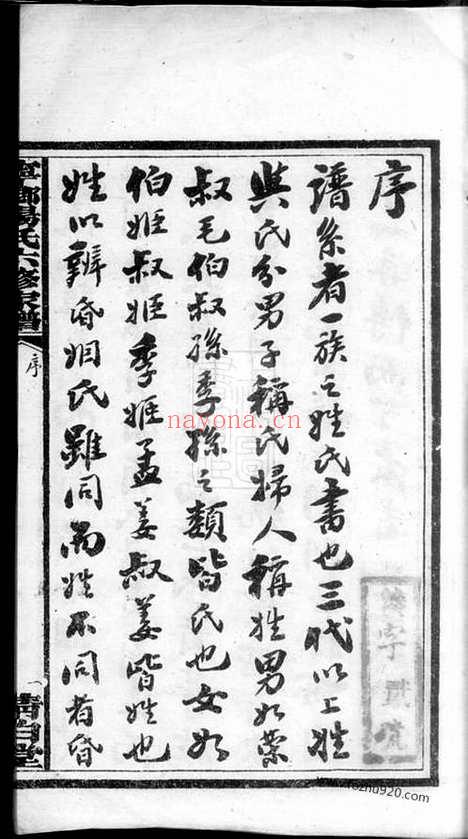 序
譜系者一族之姓氏書也三代以上姓
與氏分男子稱氏婦人稱姓男如榮
叔毛伯叔孫季孫之類皆氏也女如
伯姬叔姬季姬孟姜叔姜皆姓也
姓以辨昏姻氏雖同而姓不同者昏
寧鄉湯氏六修家譜
序
清白堂
nayona.cn